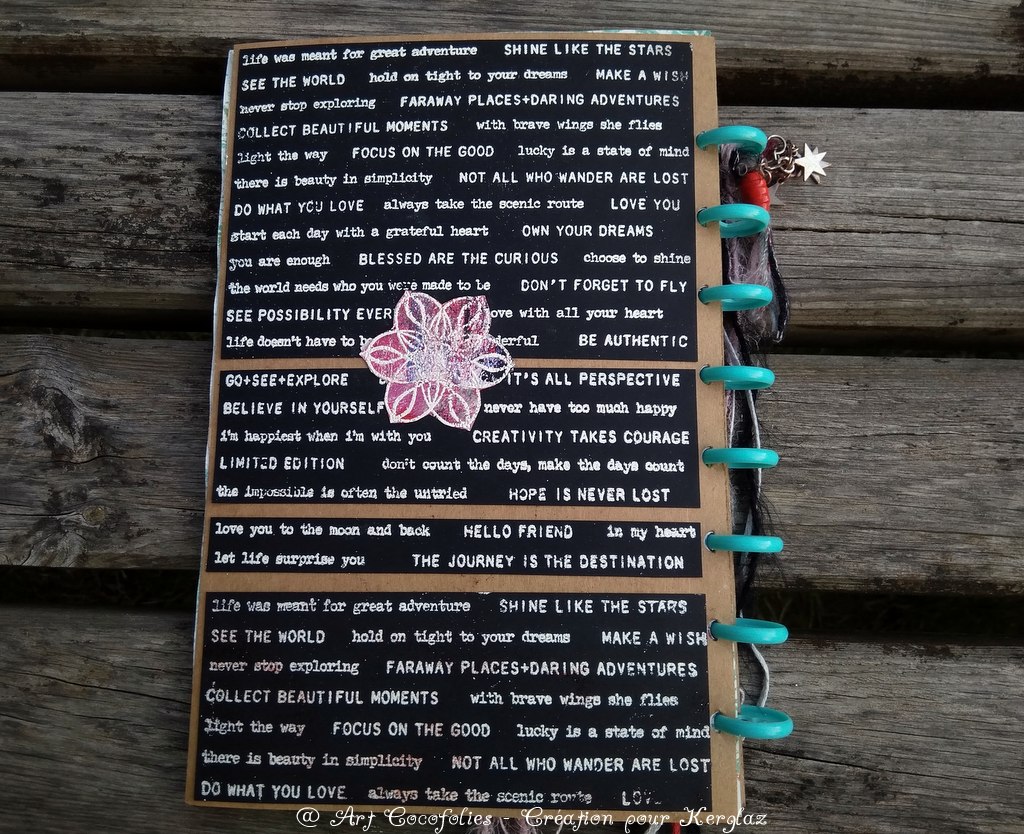 life was meant for great adventure SHINE LIKE THE STARS
SEE THE WORLD hold on tight to your dreams MAKE A WISH
never stop exploring FARAWAY PLACES+DARING ADVENTURES
COLLECT BEAUTIFUL MOMENTS with brave wings she flies
light the way FOCUS ON THE GOOD lucky is a state of mind
there is beauty in simplicity NOT ALL WHO WANDER ARE LOST
DO WHAT YOU LOVE always take the scenic route LOVE YOU
start each day with a grateful heart OWN YOUR DREAMS
you are enough BLESSED ARE THE CURIOUS choose to shine
the world needs who you were made to be DON'T FORGET TO FLY
SEE POSSIBILITY with all your heart
life doesn't have to BE AUTHENTIC
GO+SEE+EXPLORE IT'S ALL PERSPECTIVE
BELIEVE IN YOURSELF never have too much happy
i'm happiest when i'm with you CREATIVITY TAKES COURAGE
LIMITED EDITION don't count the days, make the days count
the impossible is often the untried HOPE IS NEVER LOST
love you to the moon and back HELLO FRIEND in my heart
let life surprise you THE JOURNEY IS THE DESTINATION
life was meant for great adventure SHINE LIKE THE STARS
SEE THE WORLD hold on tight to your dreams MAKE A WISH
never stop exploring FARAWAY PLACES+DARING ADVENTURES
COLLECT BEAUTIFUL MOMENTS with brave wings she flies
light the way FOCUS ON THE GOOD lucky is a state of mind
there is beauty in simplicity NOT ALL WHO WANDER ARE LOST
DO WHAT YOU LOVE always take the scenic route
@ Art Cocofolies - Creation pour Kerglaz